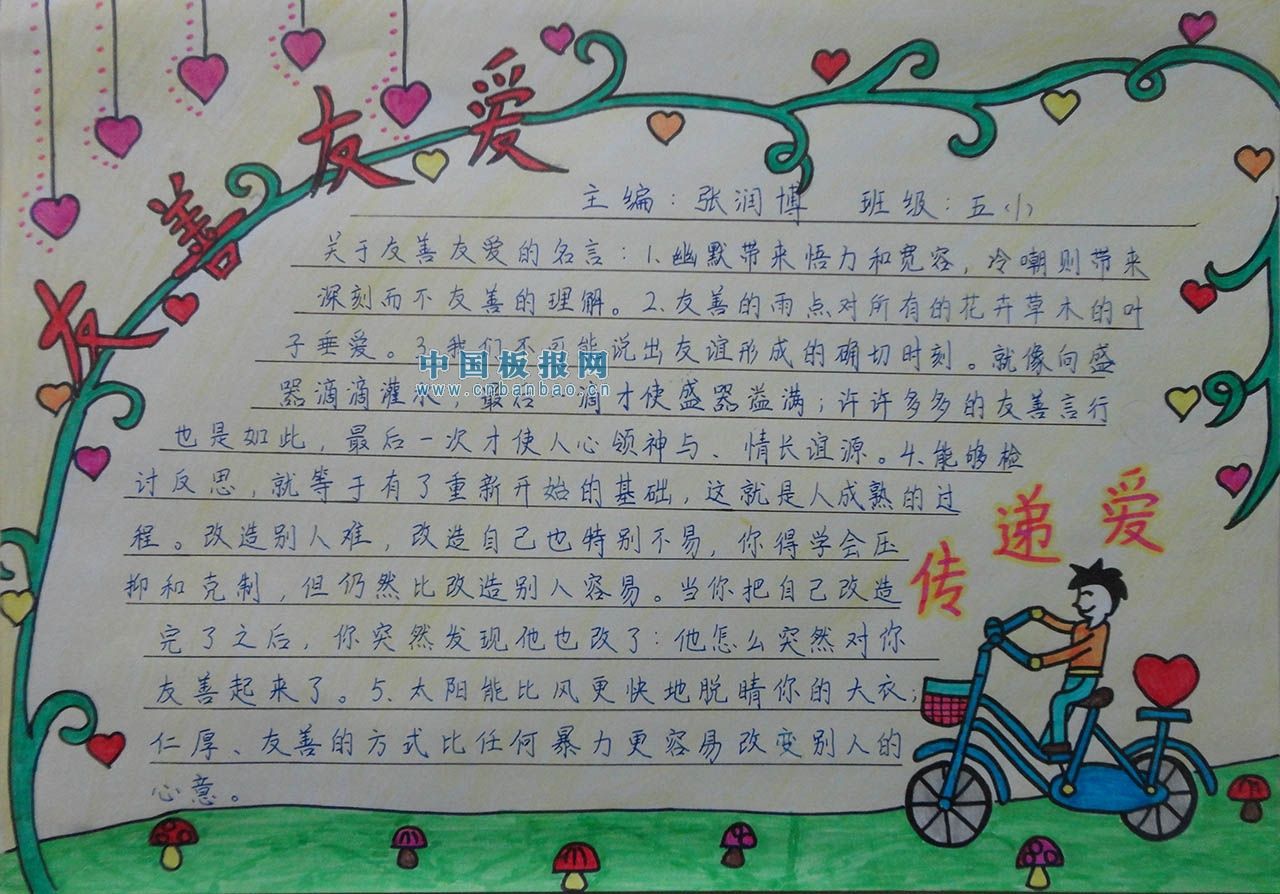 友善友爱
主编：张润博 班级：五(1)
关于友善友爱的名言：1.幽默带来悟力和宽容，冷嘲则带来
深刻而不友善的理解。2.友善的雨点对所有的花卉草木的叶
子垂爱。3.我们不可能说出友谊形成的确切时刻。就像向盛
中国板报网
www.cnbanbao.cn
器滴滴灌水，最后一滴才使盛器溢满；许许多多的友善言行
也是如此，最后一次才使人心领神与、情长谊源。4.能够检
讨反思，就等于有了重新开始的基础，这就是人成熟的过
程。改造别人难，改造自己也特别不易，你得学会压
抑和克制，但仍然比改造别人容易。当你把自己改造
完了之后，你突然发现他也改了：他怎么突然对你
友善起来了。5.太阳能比风更快地脱睛你的大衣；
仁厚、友善的方式比任何暴力更容易改变别人的
心意。
传递爱